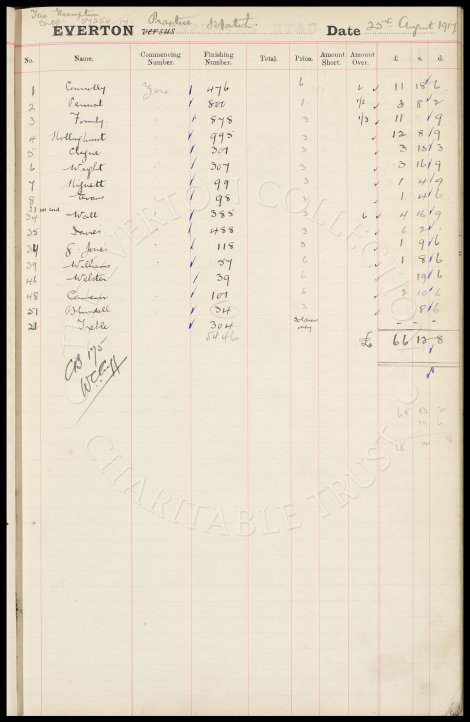 Tax Exemption
Practice Match
EVERTON versus Date 25th August 1917
No. Name. Commencing Number. Finishing Number. Total. Price. Amount Short. Amount Over. £ s. d.
1 Connolly Zero 476 6 6 11 18 6
2 800 1 3 8 2
3 Formby 878 3 1/3 11 9
4 995 3 12 8 9
5 Clague 301 3 3 15 3
6 Wright 307 3 3 16 9
7 Hignett 99 3 1 4 9
8 Evans 98 3 1 4 6
34 Wall 385 3 6 4 16 9
35 Davies 488 3 6 2
g. Jones 118 3 1 9 6
39 Williams 57 6 1 8 6
46 Webster 39 6 19 6
48 101 6 2 10 6
51 Blundell 34 3 8 6
21 Treble 304 Soldiers only - - -
5446 £ 66 12 8
CB 175
65 13 2
19 6
12 8
THE EVERTON COLLECTION
CHARITABLE TRUST